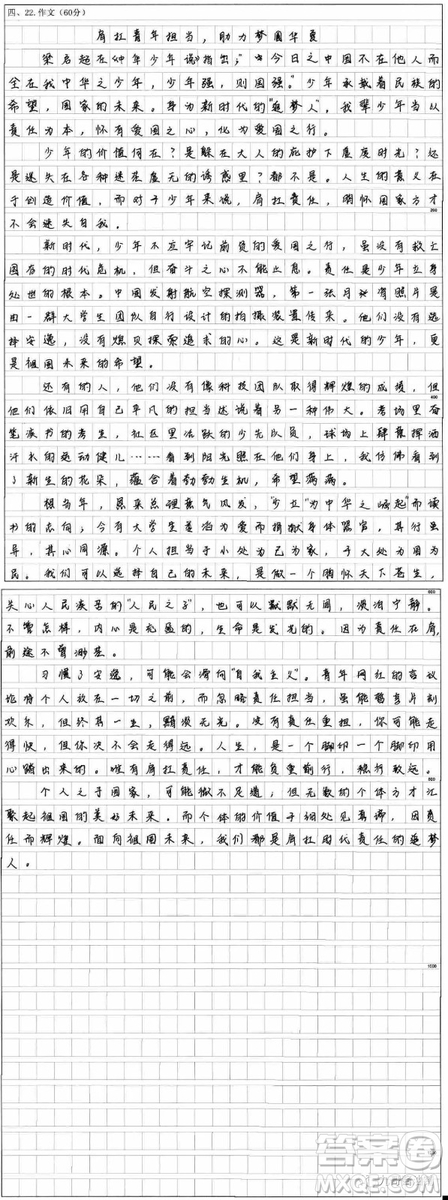 四、22.作文(60分)
肩扛青年担当，助力梦圆华夏
梁启超在《少年中国说》指出："今日之中国不在他人而
全在我中华之少年，少年强，则国强。"少年承载着民族的
希望，国家的未来。身为新时代的"追梦人"，我辈少年当从
责任为本，怀有爱国之心，化为爱国之行。
少年的价值何在？是躲在大人的庇护下虚度时光？还
是迷失在各种的诱惑里？都不是。人生的意义在
于创造价值，而对于少年来说，肩扛责任，胸怀国家方才
不会迷失自我。
200
新时代，少年不应牢记前负的爱国之行，虽没有救亡
图存的时代危机，但奋斗之心不能止息。责任是少年立身
处世的根本。中国发射航空探测器，第一张月地有照片是
由一群大学生团队自行设计的拍摄装置传来。他们没有选
择安逸，没有探索追求的心。这是新时代的少年，更
是祖国未来的希望。
还有的人，他们没有像科技团队取得辉煌的成绩，但
400
他们依旧用自己平凡的担当述说着另一种伟大。考场里奋
笔疾书的考生，社区里活跃的少先队员，球场上肆意挥洒
汗水的运动健儿……看到阳光照在他们身上，我仿佛看到
了新生的花朵，蕴含着勃勃生机，希望满满。
想当年，恩来总理意气风发，少立"为中华之崛起"而读
书的志向，今有大学生为爱而捐献身体器官，其行虽
异，其心同源。个人担当于小处为己为家，于大处为国为
民。我们可以选择自己的未来，是做一个胸怀天下苍生，
600
关心人民疾苦的"人民之子"，也可以默默无闻，淡泊宁静。
不管怎样，内心是充盈的，生命是发光的。因为责任在肩，
前途不曾渺茫。
习惯了安逸，可能会滑向"自我主义"。青年网红的言议
论将个人放在一切之前，而忽略责任担当，虽能暂享片刻
欢乐，但终其一生，黯淡无光。没有责任重担，你可能走
得快，但你决不会走得远。人生，是一个脚印一个脚印用
心踏出来的。唯有肩扛责任，才能负重前行，稳行致远。
800
个人之于国家，可能微不足道，但无数的个体方才汇
聚起祖国的美好未来。而个体的价值于细处见，因责
任而辉煌。面向祖国未来，我们都是肩扛时代责任的追梦
人。
1000
答案圈